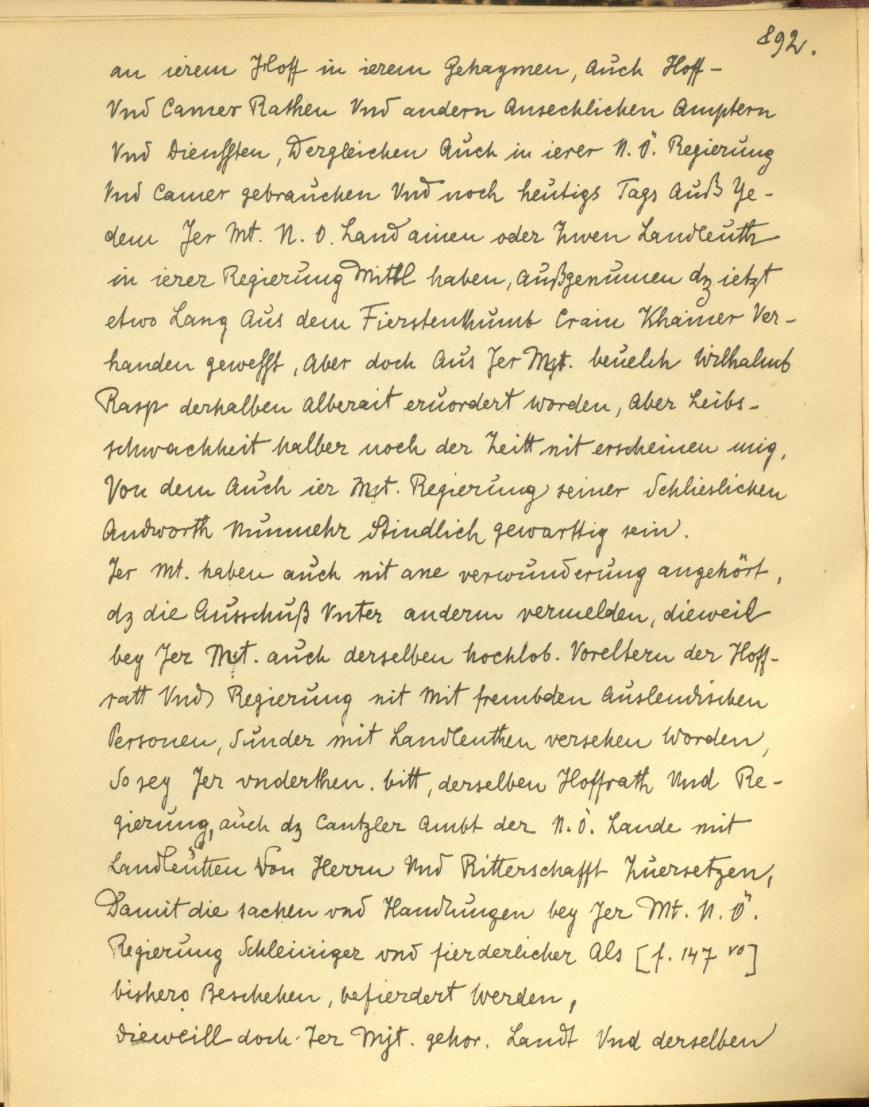 892.
an ierem Hoff in ierem Gehaymen, Auch Hoff-
Vnd Camer Rathen Vnd andern Ansechlichen Amptern
Vnd Diensten, Dergleichen Auch in ierer N. Ö. Regierung
Vnd Camer gebrauchen Vnd noch heutigs Tags Auß Ye-
dem Jer Mt. N. O. Land ainen oder Zwen Landleuth
in ierer Regierung Mittl haben, Außgenumen dz ietzt
etwo Lang Aus dem Fierstenthumb Crain Khainer Ver-
handen gewesst, Aber doch Aus Jer Mgt. beuelch Wilhalmb
Rasp derhalben Alberait eruordert worden, Aber Leibs-
schwachheit halber noch der Zeitt nit erscheinen mig,
Von dem Auch ier Mgt. Regierung seiner Schlieslichen
Andworth Nunmehr Stindlich gewarttig sein.
Jer Mt. haben auch nit ane verwunderung angehört,
dz die Ausschuß Vnter anderm vermelden, dieweil
bey Jer Mgt. auch derselben hochlob. Voreltern der Hoff-
ratt Vnd Regierung nit Mit frembden Auslendischen
Personen, Sunder mit Landleuthen versehen Worden,
So sey Jer vnderthen. bitt, derselben Hoffrath Vnd Re-
gierung, auch dz Cantzler Ambt der N. Ö. Lande mit
Landleutten Von Herrn Vnd Ritterschafft Zuersetzen,
Damit die sachen vnd Handlungen bey Jer Mt. N. Ö.
Regierung Schleiniger vnd fierderlicher Als [f. 147 vo]
bishero Beschehen, befierdert Werden,
Dieweill doch Jer Mjt. gehor. Landt Vnd derselben